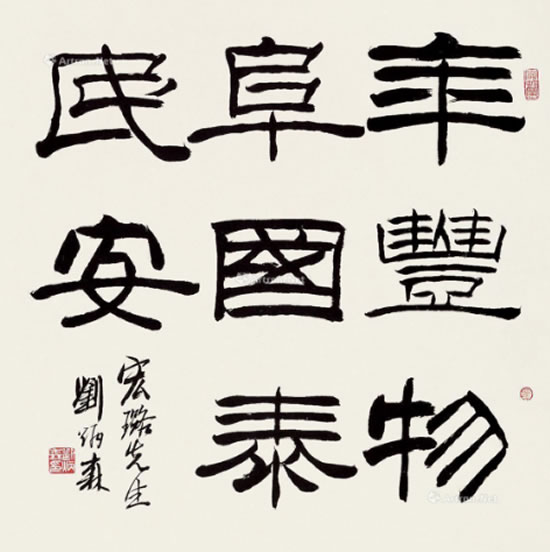 年豐物
阜國泰
民安
宏璐先生
劉炳森
Artron.Net